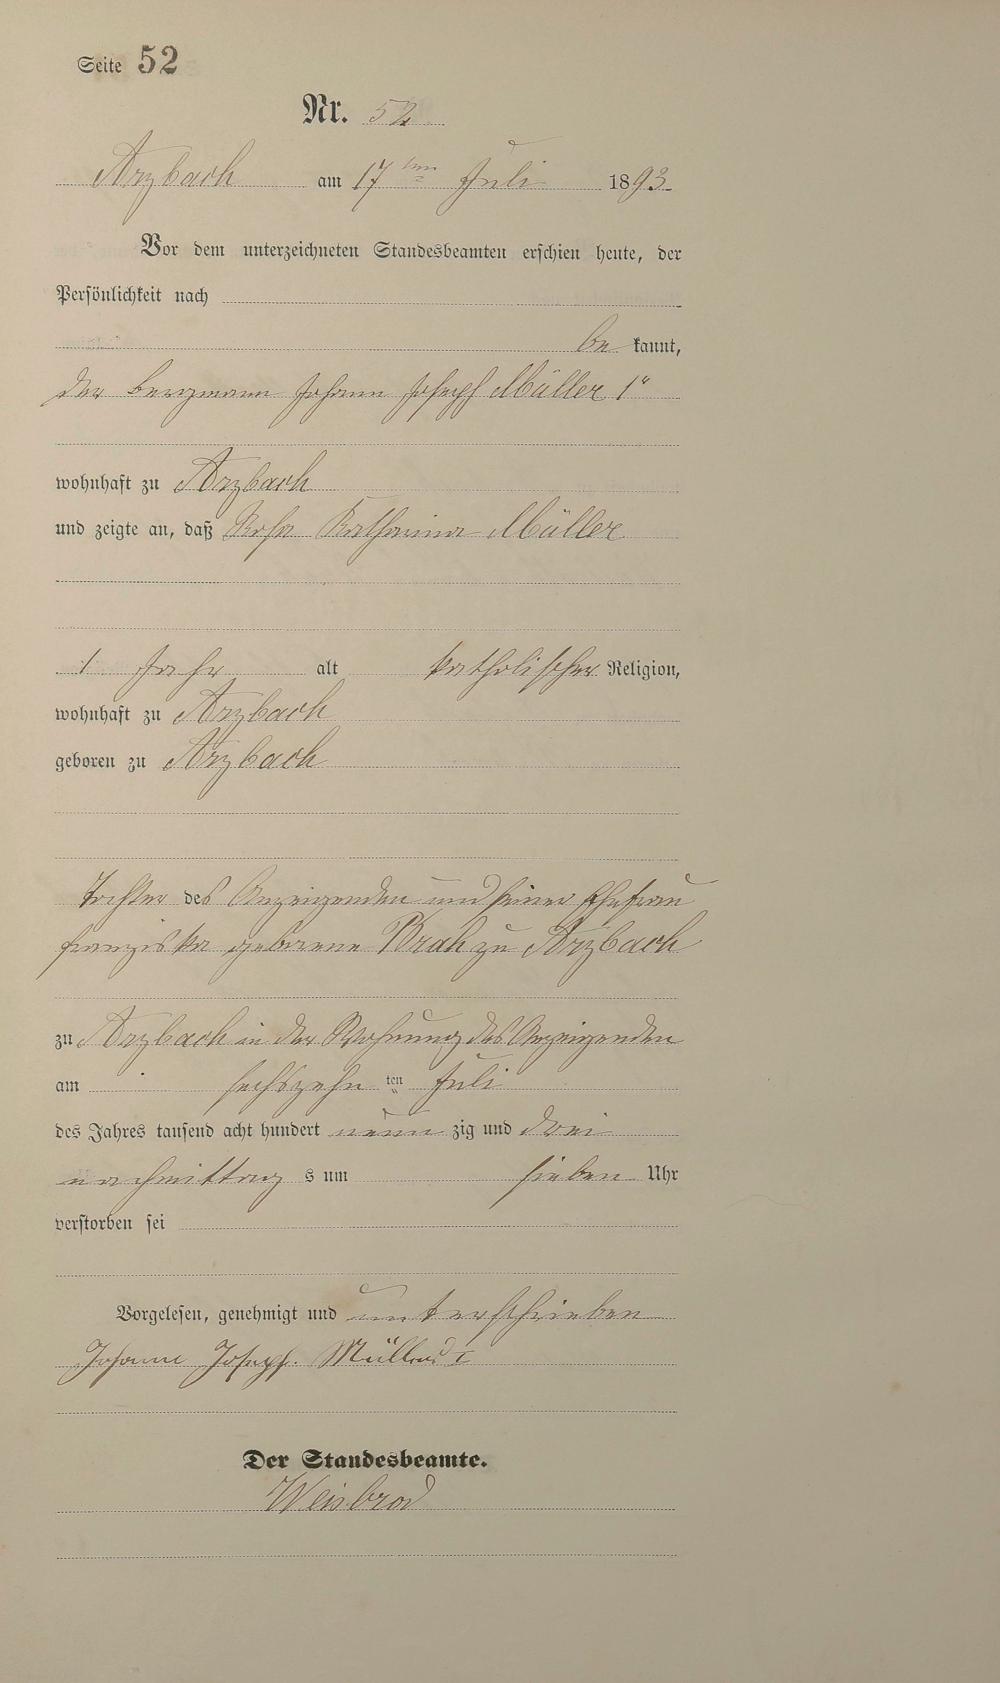 Seite 52
Nr. 52
Arzbach am 17ten Juli 1893
Vor dem unterzeichneten Standesbeamten erschien heute, der
Persönlichkeit nach
be kannt,
der Bergmann Johann Joseph Müller 1r
wohnhaft zu Arzbach
und zeigte an, daß Rosa Katharina Müller
1 Jahr alt katholischer Religion,
wohnhaft zu Arzbach
geboren zu Arzbach
Tochter des Anzeigenden und seiner Ehefrau
Franziska geborene Brah zu Arzbach
zu Arzbach in der Wohnung des Anzeigenden
am sechszehn ten Juli
des Jahres tausend acht hundert neun zig und drei
nachmittag s um sieben Uhr
verstorben sei
Vorgelesen, genehmigt und unterschrieben
Johann Joseph Müller I
Der Standesbeamte.
Weisbrod